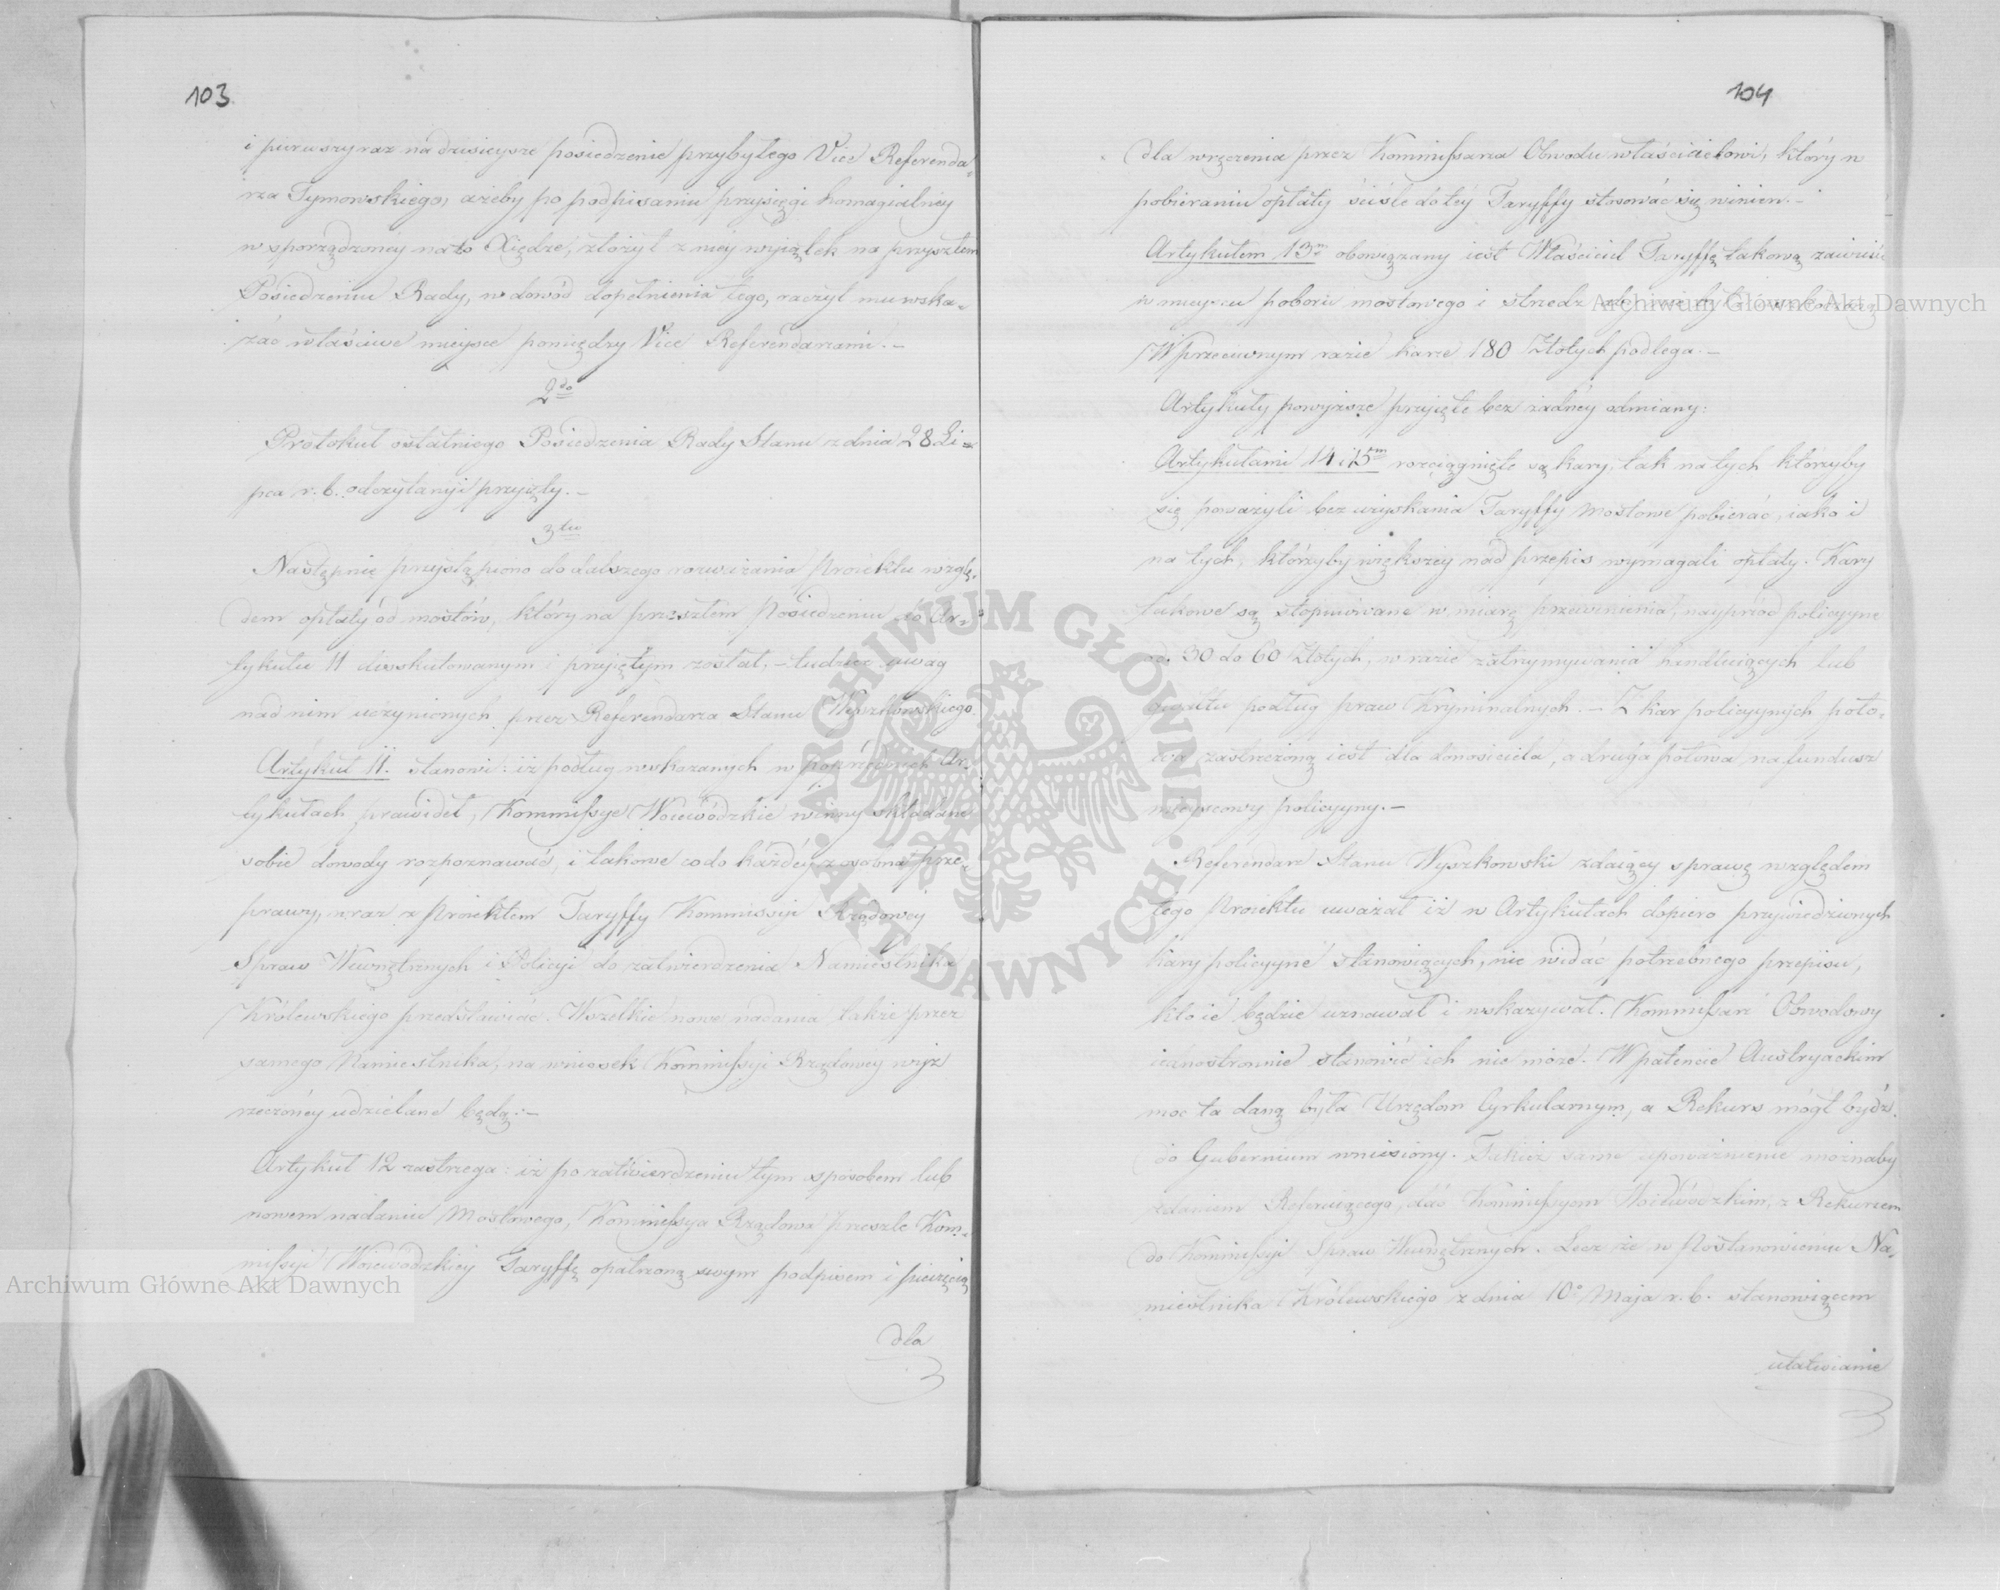 103
i pierwszy raz na dzisieysze posiedzenie przybyłego Vice Referenda-
rza Tymowskiego, ażeby po podpisaniu przysięgi homagialney
w sporządzoney na to Xiędze, złożył z niey wyiątek na przyszłem
Posiedzeniu Rady, w dowód dopełnienia tego, raczył mu wska-
zać właściwe mieysce pomiędzy Vice Referendarzami.-
2do
Protokuł ostatniego Posiedzenia Rady Stanu z dnia 28 Li-
pca r. b. odczytany i przyięty.-
3tio
Następnie przystąpiono do dalszego rozważania Proiektu wzglę-
dem opłaty od mostów, który na przeszłem Posiedzeniu do Ar-
tykułu 11 diskutowanym i przyiętym został,- tudzież uwag
nad nim uczynionych przez Referendarza Stanu Wyszkowskiego.
Artykuł 11. stanowi: iż podług wskazanych w poprzednich Ar-
tykułach prawideł, Kommissye Woiewódzkie winny składane
sobie dowody rozpoznawać, i takowe co do każdéy z osobna prze-
prawy, wraz z Proiektem Taryffy Kommissyi Rządowey
Spraw Wewnętrznych i Policyi do zatwierdzenia Namiestnika
Królewskiego przedstawiać. Wszelkie nowe nadania także przez
samego Namiestnika, na wniosek Kommissyi Rządowey wyż
rzeczonéy udzielane będą.-
Artykuł 12 zastrzega: iż po zatwierdzeniu tym sposobem lub
nowem nadaniu Mostowego, Kommissya Rządowa prześle Kom-
missyi Woiewódzkiey Taryffę opatrzoną swym podpisem i pieczęcią
dla
104
dla wręczenia przez Kommissarza Obwodu właścicielowi, który w
pobieraniu opłaty ściśle do téy Taryffy stosować się winien.-
Artykułem 13m obowiązany iest Właściciel Taryffę takową zawiesić
w mieyscu poboru mostowego i strzedz aby nie była uszkodzoną
W przeciwnym razie karze 180 Złotych podlega.-
Artykuły powyższe przyięte bez żadnéy odmiany:
Artykułami 14 i 15tm rozciągnięte są kary, tak na tych którzyby
się poważyli bez uzyskania Taryffy mostowe pobierać, iako i
na tych, którzyby większey nad przepis wymagali opłaty. Kary
takowe są stopniowane w miarę przewinienia, nayprzód policyyne
od 30 do 60 Złotych, w razie zatrzymywania handluiących lub
podług praw Kryminalnych.- Z kar policyynych poło-
wa zastrzeżoną iest dla donosiciela, a druga połowa na fundusz
mieyscowy policyyny.-
Referendarz Stanu Wyszkowski zdaiący sprawę względem
tego Proiektu uważał iż w Artykułach dopiero przywiedzionych
kary policyyne stanowiących, nie widać potrzebnego przepisu,
kto ie będzie uznawał i wskazywał. Kommissarz Obwodowy
iednostronnie stanowić ich nie może. W patencie Austryackim
moc ta daną była Urzędom Cyrkularnym, a Rekurs mógł bydź
do Gubernium wniesiony. Takież samo upoważnienie możnaby
zdaniem Referuiącego, dać Kommissyom Woiewódzkim, z Rekursem
do Kommissyi Spraw Wewnętrznych. Lecz że w Postanowieniu Na-
miestnika Królewskiego z dnia 10o Maja r. b. stanowiącem
ułatwianie
ARCHIWUM GŁÓWNE · AKT DAWNYCH ·
Archiwum Główne Akt Dawnych
Archiwum Główne Akt Dawnych